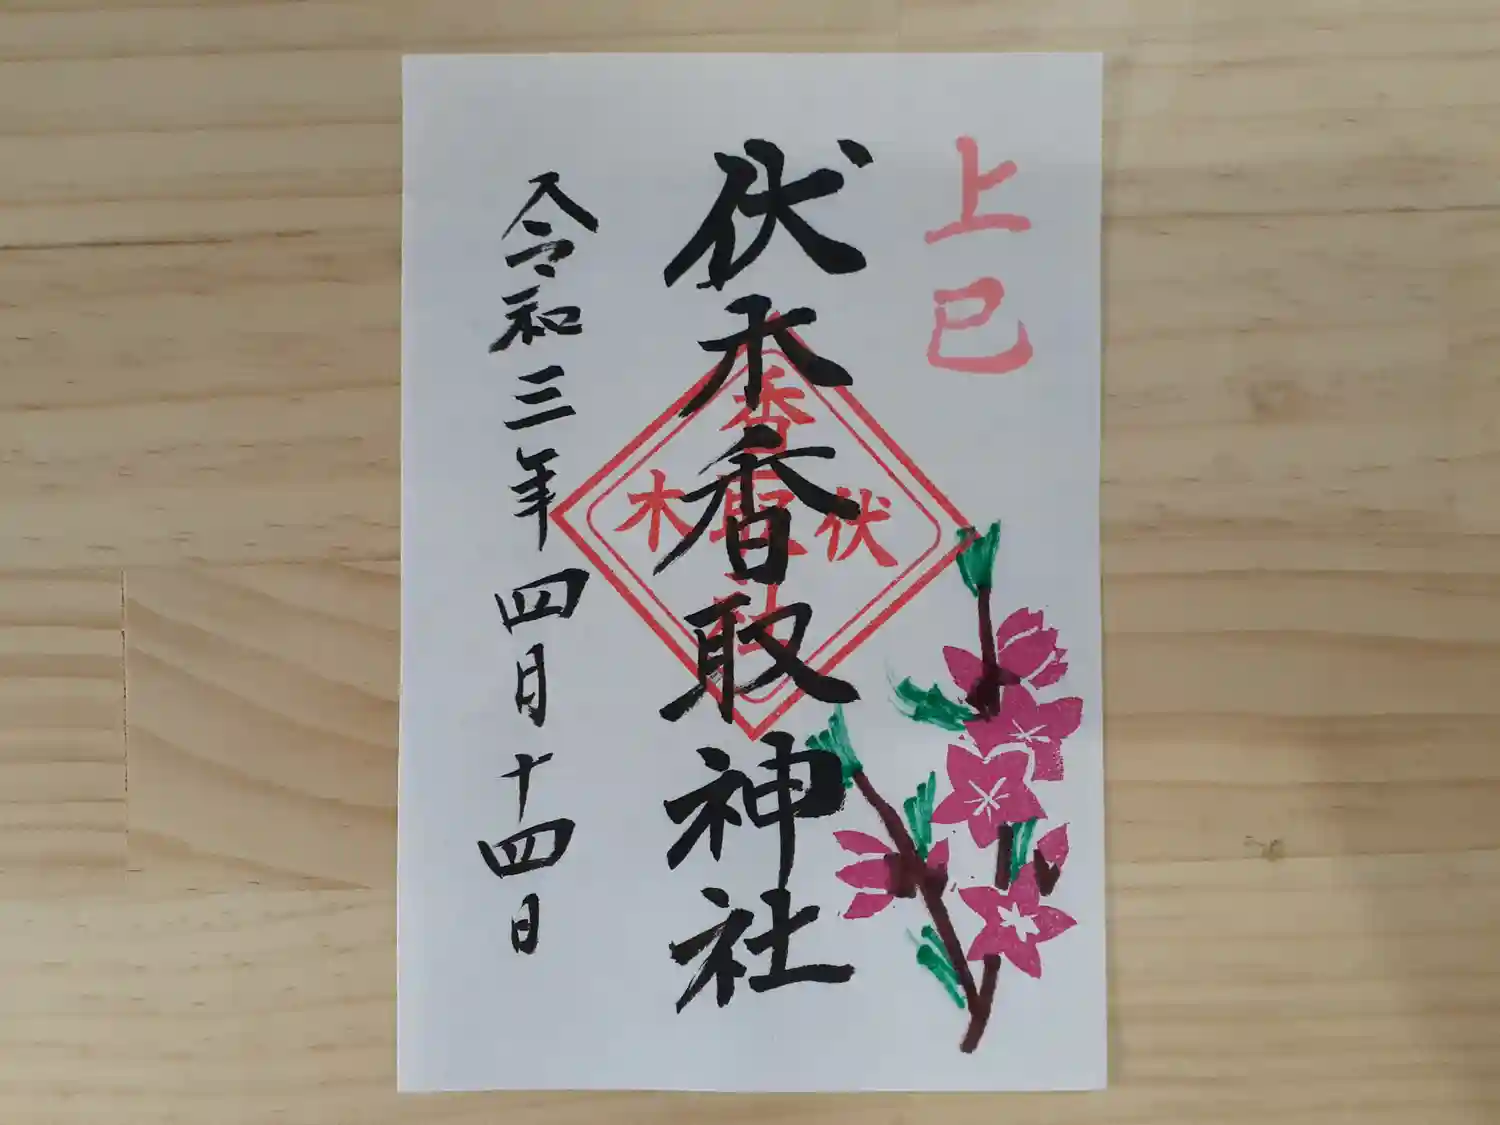 上巳
伏木香取神社
伏
香取社
木
令和三年四月十四日